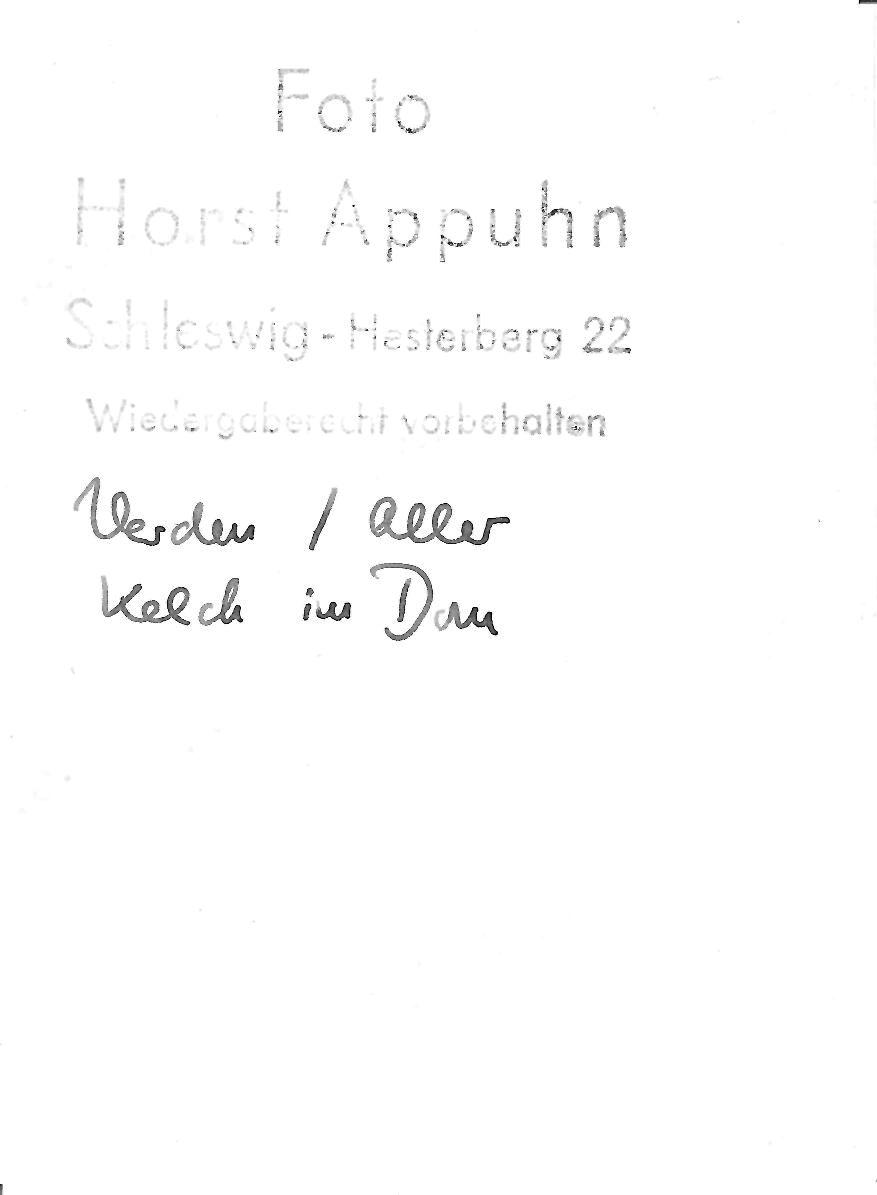 Foto
Horst Appuhn
Schleswig - Hesterberg 22
Wiedergaberecht vorbehalten
Verden / Aller
Kelch im Dom